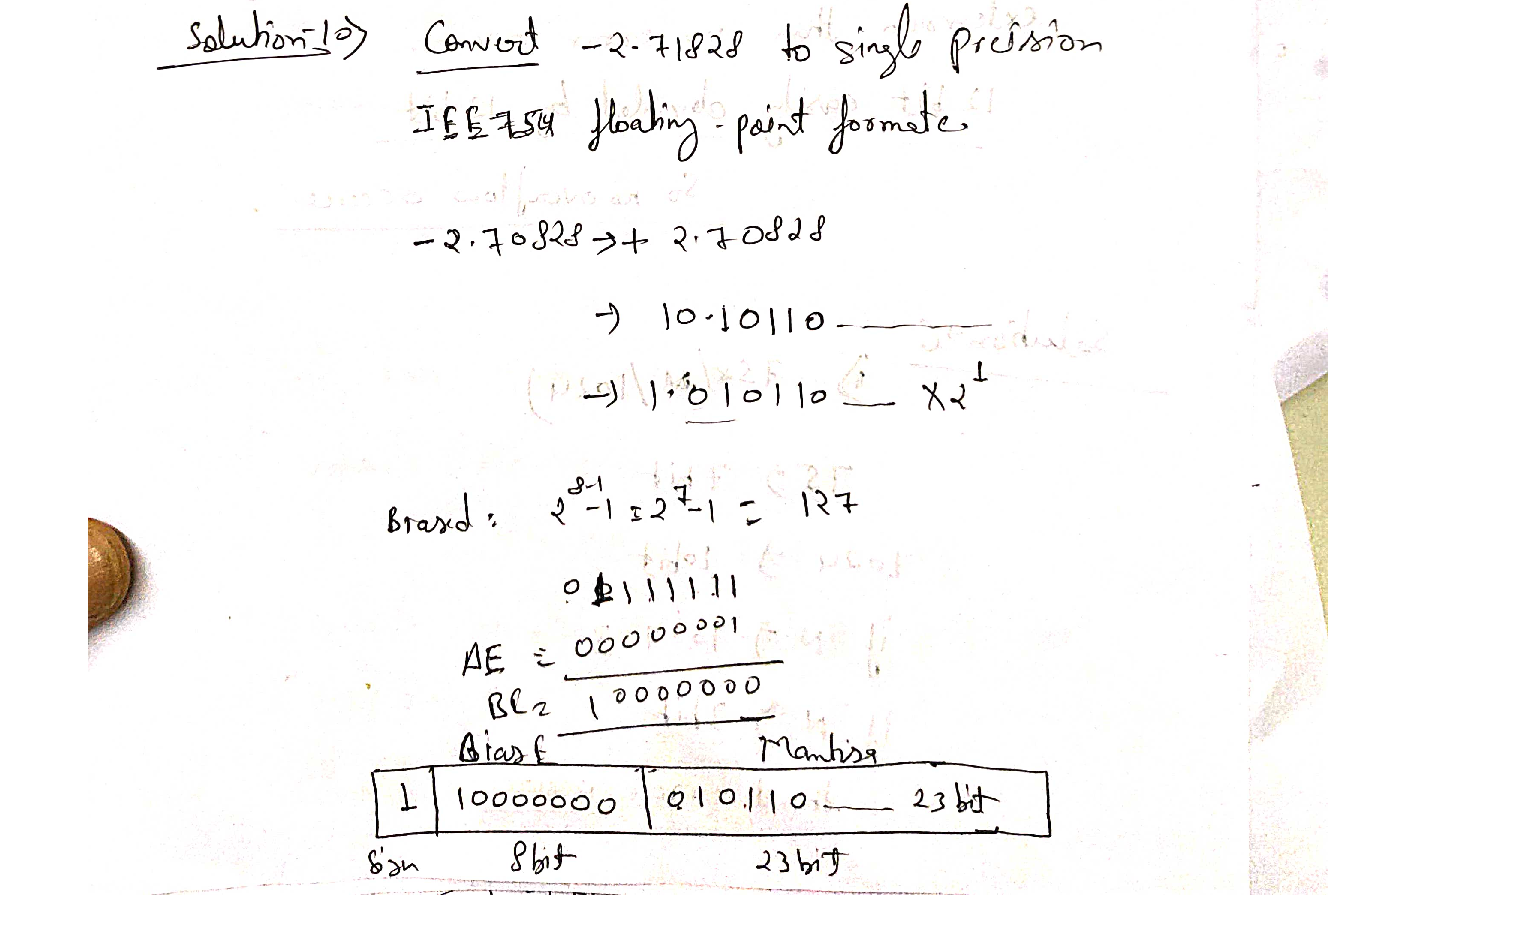 Solution-10) Convert -2.71828 to single precision
IEE754 floating-point formate.
-2.70828 → + 2.70828
→ 10.10110
→ 1.010110 — x2^1
Biased: 2^8-1 -1 = 2^7-1 = 127
01111111
AE = 00000001
BE = 10000000
Bias E Mantisa
1 10000000 010110 — 23 bit
Sign 8bit 23 bit